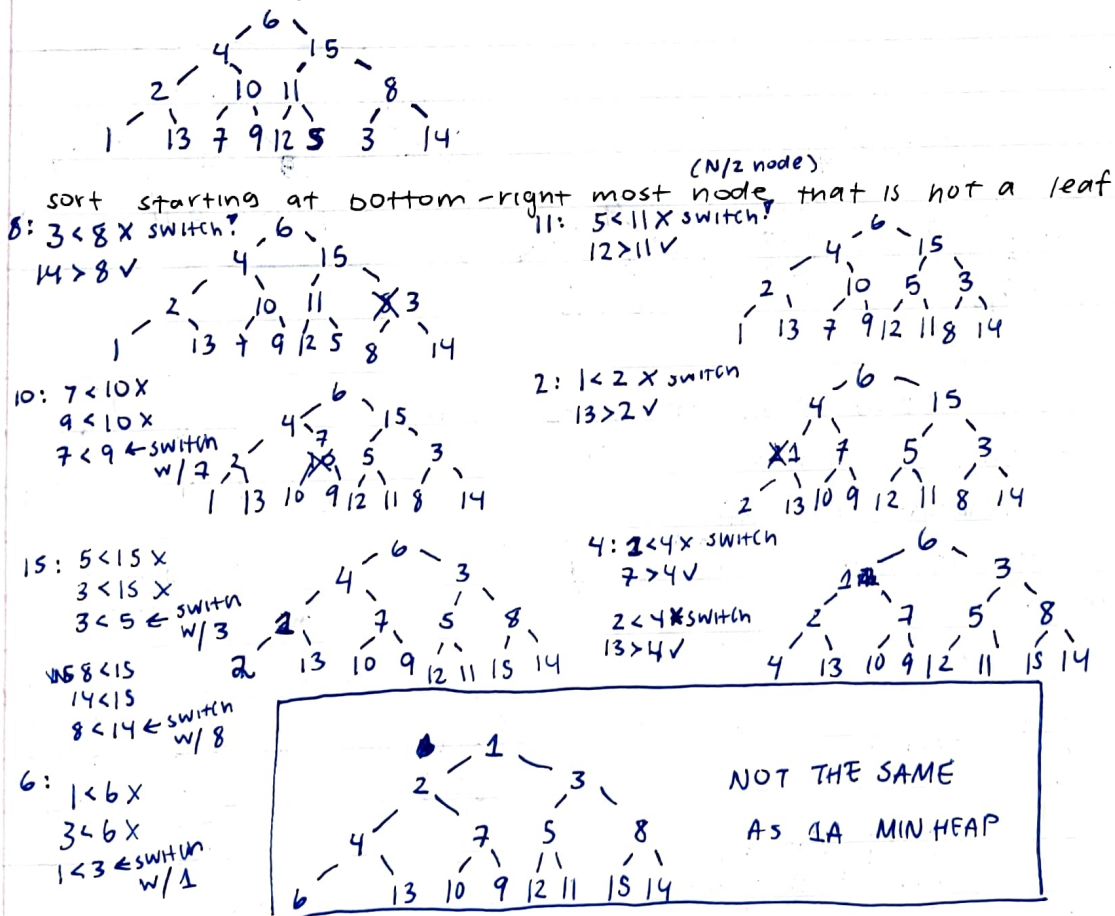 6
4 15
2 10 11 8
1 13 7 9 12 5 3 14
(N/2 node)
sort starting at bottom-right most node that is not a leaf
8: 3 < 8 X switch!
14 > 8 ✓
6
4 15
2 10 11 3
1 13 7 9 12 5 8 14
11: 5 < 11 X switch!
12 > 11 ✓
6
4 15
2 10 5 3
1 13 7 9 12 11 8 14
10: 7 < 10 X
9 < 10 X
7 < 9 ← switch
w/ 7
6
4 15
2 7 5 3
1 13 10 9 12 11 8 14
2: 1 < 2 X switch
13 > 2 ✓
6
4 15
1 7 5 3
2 13 10 9 12 11 8 14
15: 5 < 15 X
3 < 15 X
3 < 5 ← switch
w/ 3
8 < 15
14 < 15
8 < 14 ← switch
w/ 8
6
4 3
1 7 5 8
2 13 10 9 12 11 15 14
4: 1 < 4 X switch
7 > 4 ✓
2 < 4 X switch
13 > 4 ✓
6
1 3
2 7 5 8
4 13 10 9 12 11 15 14
6: 1 < 6 X
3 < 6 X
1 < 3 ← switch
w/ 1
1
2 3
4 7 5 8
6 13 10 9 12 11 15 14
NOT THE SAME
AS 1A MIN HEAP